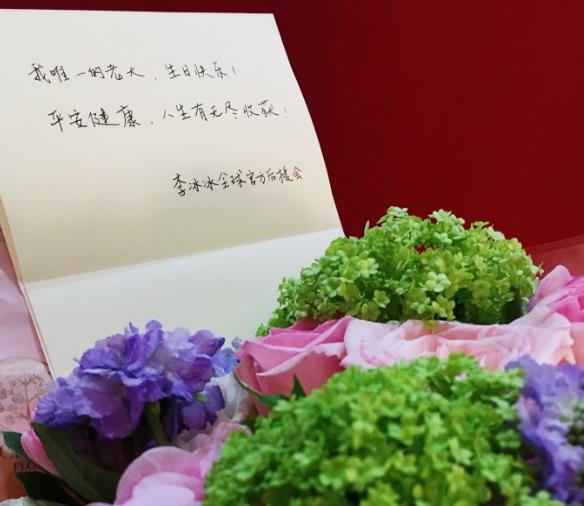 我唯一的老大，生日快乐！
平安健康，人生有无尽收获！
李冰冰全球官方后援会